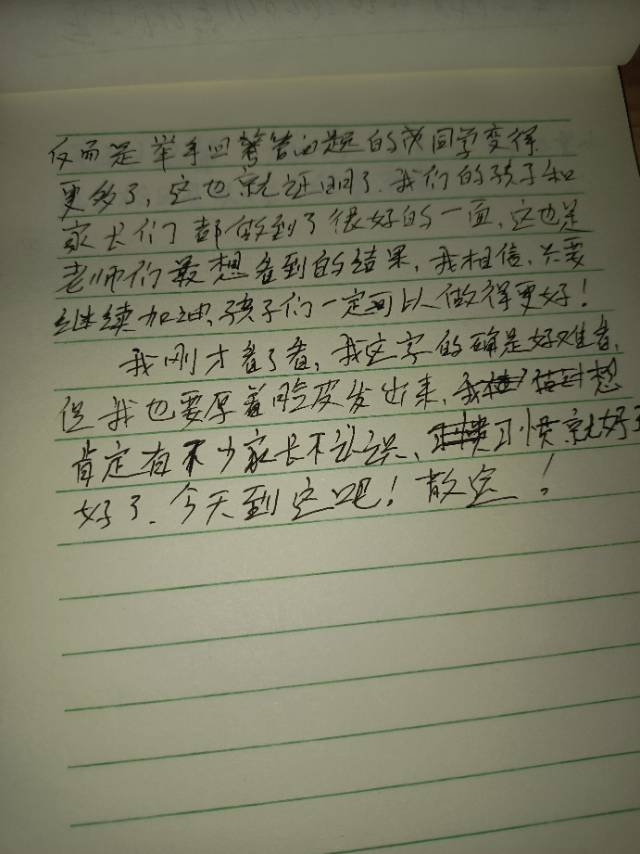 反而是举手回答问题的同学变得
更多了,这也就证明了.我们的孩子和
家长们都做到了很好的一面,这也是
老师们最想看到的结果,我相信,只要
继续加油,孩子们一定可以做得更好!
我刚才看了看,我这字的确是好难看,
但我也要厚着脸皮发出来,想
肯定有不少家长不认识、习惯就好
好了.今天到这吧!散会!